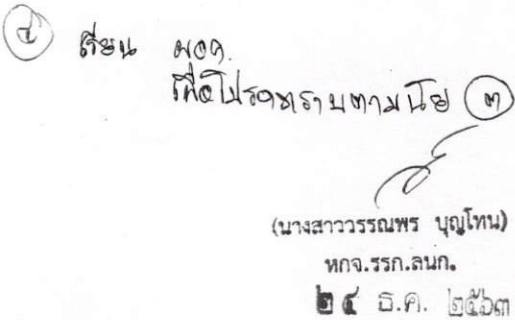 ๔ เรียน ผอค.
เพื่อโปรดทราบตามนัย ๓
(นางสาววรรณพร บุญโทน)
หกจ.รรก.ลนก.
๒๔ ธ.ค. ๒๕๖๓